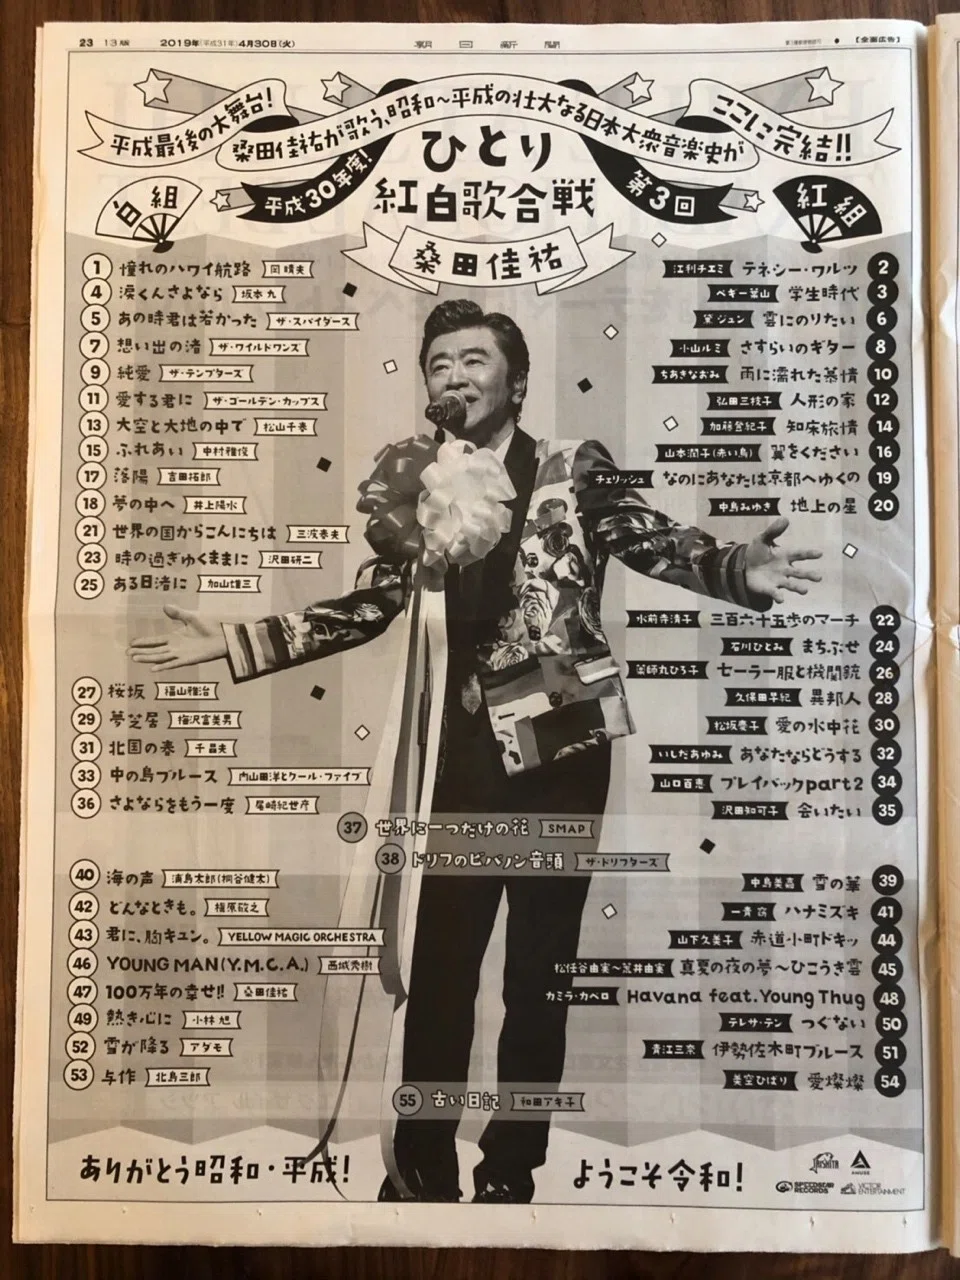 23 13版 2019年(平成31年)4月30日(火) 朝日新聞 【全面広告】
平成最後の大舞台!
桑田佳祐が歌う、昭和〜平成の壮大なる日本大衆音楽史が
ここに完結!!
平成30年度!
ひとり
紅白歌合戦
第3回
桑田佳祐
白組
紅組
1 憧れのハワイ航路 岡晴夫
4 涙くんさよなら 坂本九
5 あの時君は若かった ザ・スパイダース
7 想い出の渚 ザ・ワイルドワンズ
9 純愛 ザ・テンプターズ
11 愛する君に ザ・ゴールデン・カップス
13 大空と大地の中で 松山千春
15 ふれあい 中村雅俊
17 落陽 吉田拓郎
18 夢の中へ 井上陽水
21 世界の国からこんにちは 三波春夫
23 時の過ぎゆくままに 沢田研二
25 ある日渚に 加山雄三
27 桜坂 福山雅治
29 夢芝居 梅沢富美男
31 北国の春 千昌夫
33 中の島ブルース 内山田洋とクール・ファイブ
36 さよならをもう一度 尾崎紀世彦
江利チエミ テネシー・ワルツ 2
ペギー葉山 学生時代 3
黛ジュン 雲にのりたい 6
小山ルミ さすらいのギター 8
ちあきなおみ 雨に濡れた慕情 10
弘田三枝子 人形の家 12
加藤登紀子 知床旅情 14
山本潤子(赤い鳥) 翼をください 16
チェリッシュ なのにあなたは京都へゆくの 19
中島みゆき 地上の星 20
水前寺清子 三百六十五歩のマーチ 22
石川ひとみ まちぶせ 24
薬師丸ひろ子 セーラー服と機関銃 26
久保田早紀 異邦人 28
松坂慶子 愛の水中花 30
いしだあゆみ あなたならどうする 32
山口百恵 プレイバックpart2 34
沢田知可子 会いたい 35
37 世界に一つだけの花 SMAP
38 ドリフのビバノン音頭 ザ・ドリフターズ
40 海の声 浦島太郎(桐谷健太)
42 どんなときも。 槇原敬之
43 君に、胸キュン。 YELLOW MAGIC ORCHESTRA
46 YOUNG MAN(Y.M.C.A.) 西城秀樹
47 100万年の幸せ!! 桑田佳祐
49 熱き心に 小林旭
52 雪が降る アダモ
53 与作 北島三郎
中島美嘉 雪の華 39
一青窈 ハナミズキ 41
山下久美子 赤道小町ドキッ 44
松任谷由実〜荒井由実 真夏の夜の夢〜ひこうき雲 45
カミラ・カベロ Havana feat.Young Thug 48
テレサ・テン つぐない 50
青江三奈 伊勢佐木町ブルース 51
美空ひばり 愛燦燦 54
55 古い日記 和田アキ子
ありがとう昭和・平成!
ようこそ令和!
TAISHITA
AMUSE
SPEEDSTAR RECORDS
VICTOR ENTERTAINMENT